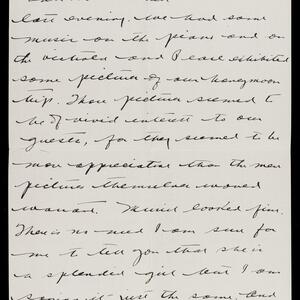 last evening. We had some
music on the piano and on
the victrola and Pearl exhibited
some pictures of our honeymoon
trip. Those pictures seemed to
be of vivid interest to our
guests, for they seemed to be
more appreciative than the mere
pictures themselves would
warrant. Muriel looked fine.
There is no need I am sure for
me to tell you that she is
a splendid girl but I am
saying it just the same, and